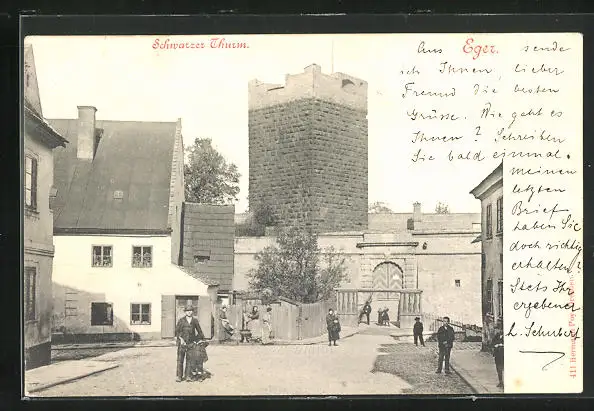 Schwarzer Thurm.
Aus Eger. sende
ich Ihnen, lieber
Freund die besten
Grüsse. Wie geht es
Ihnen? Schreiben
Sie bald einmal.
meinen
letzten
Brief
haben Sie
doch richtig
erhalten?
Stets Ihr
ergebener
L. Schubert
411